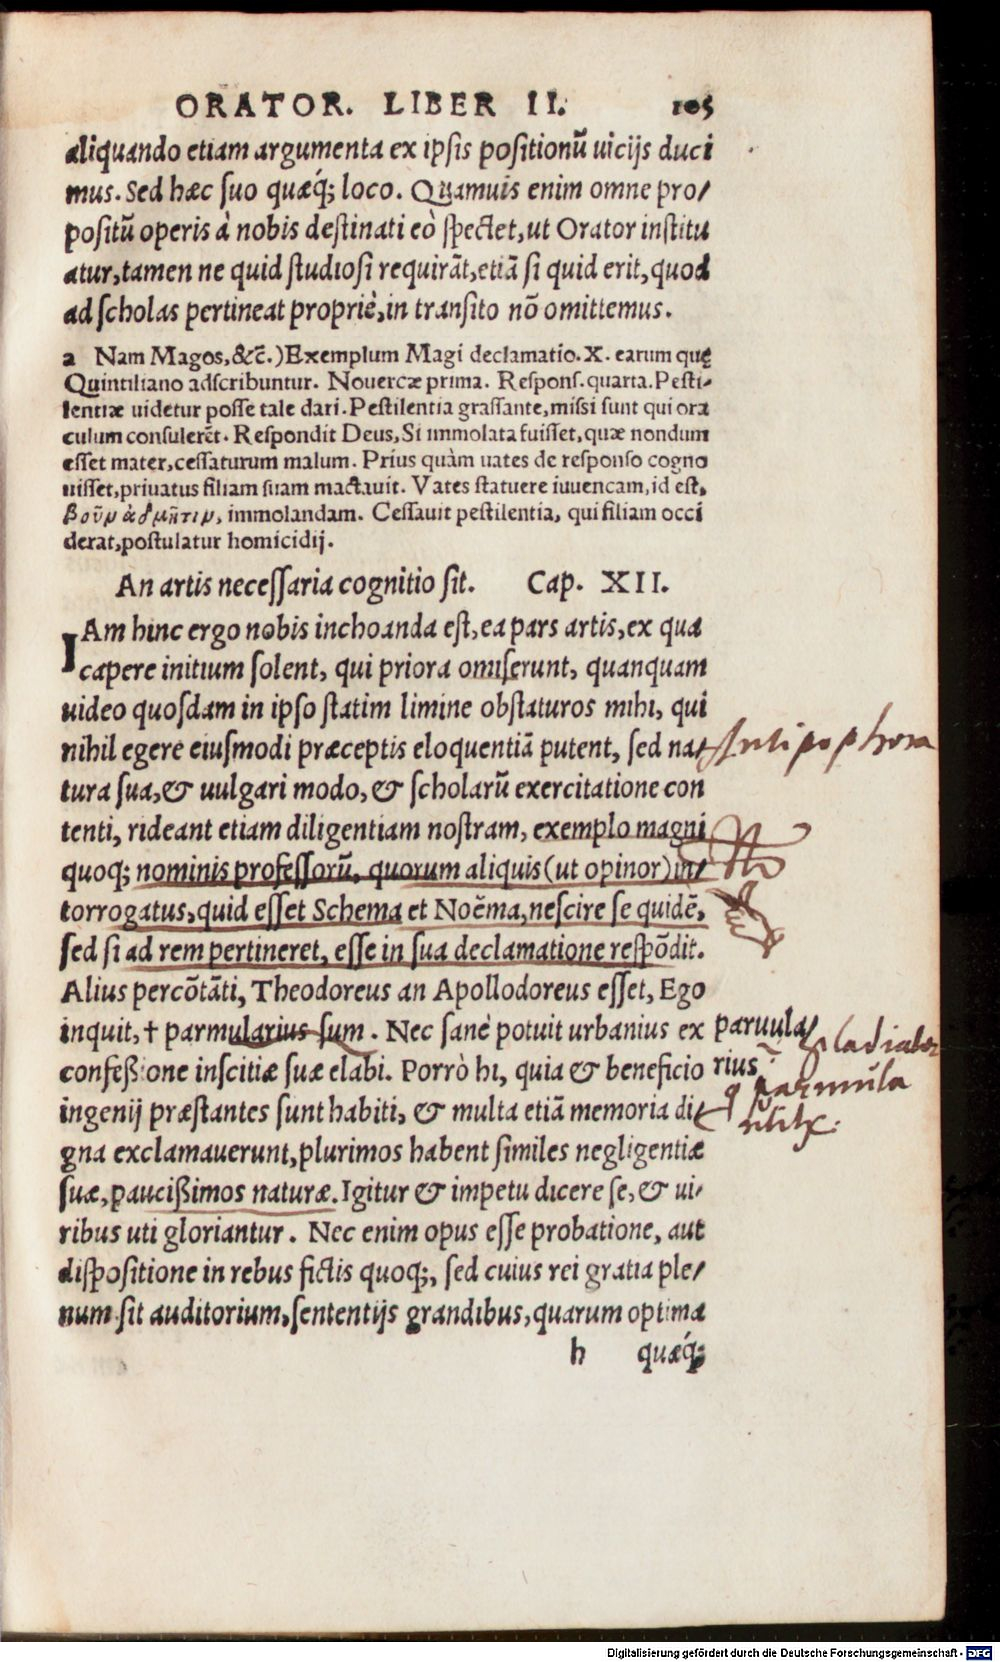 ORATOR. LIBER II. 105
aliquando etiam argumenta ex ipsis positionū uicijs duci
mus. Sed hæc suo quæq́; loco. Quamuis enim omne pro/
positū operis à nobis destinati eò spectet, ut Orator institu
atur, tamen ne quid studiosi requirāt, etiā si quid erit, quod
ad scholas pertineat propriè, in transito nō omittemus.
a Nam Magos, &c̄.) Exemplum Magi declamatio. X. earum quę
Quintiliano adscribuntur. Nouercæ prima. Respons. quarta. Pesti-
lentiæ uidetur posse tale dari. Pestilentia grassante, missi sunt qui ora
culum consulerēt. Respondit Deus, Si immolata fuisset, quæ nondum
esset mater, cessaturum malum. Prius quàm uates de responso cogno
uisset, priuatus filiam suam mactauit. Vates statuere iuuencam, id est,
βοῦν ἀδμῆτιν, immolandam. Cessauit pestilentia, qui filiam occi
derat, postulatur homicidij.
An artis necessaria cognitio sit. Cap. XII.
IAm hinc ergo nobis inchoanda est, ea pars artis, ex qua
capere initium solent, qui priora omiserunt, quanquam
uideo quosdam in ipso statim limine obstaturos mihi, qui
nihil egere eiusmodi præceptis eloquentiā putent, sed na/ Antipophora
tura sua, & uulgari modo, & scholarū exercitatione con
tenti, rideant etiam diligentiam nostram, exemplo magni
quoq; nominis professorū, quorum aliquis (ut opinor) in/
torrogatus, quid esset Schema et Noēma, nescire se quidē,
sed si ad rem pertineret, esse in sua declamatione respōdit.
Alius percōtāti, Theodoreus an Apollodoreus esset, Ego
inquit, † parmularius sum. Nec sanè potuit urbanius ex paruula/ gladiator
confeßione inscitiæ suæ elabi. Porrò hi, quia & beneficio rius
ingenij præstantes sunt habiti, & multa etiā memoria di/ q parmula
gna exclamauerunt, plurimos habent similes negligentiæ
suæ, paucißimos naturæ. Igitur & impetu dicere se, & ui/
ribus uti gloriantur. Nec enim opus esse probatione, aut
dispositione in rebus fictis quoq;, sed cuius rei gratia ple/
num sit auditorium, sententijs grandibus, quarum optima
h quæq́;
Digitalisierung gefördert durch die Deutsche Forschungsgemeinschaft - DFG